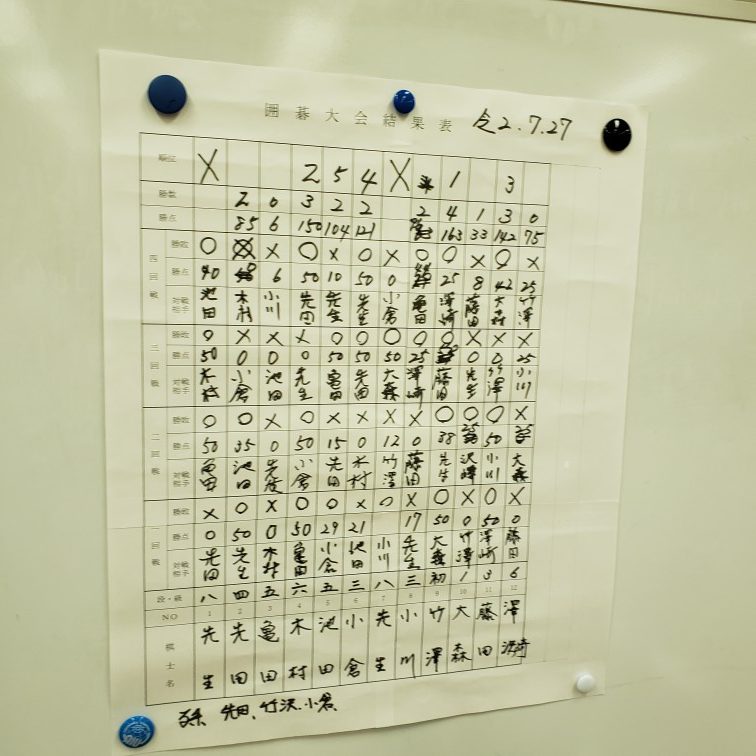 囲碁大会結果表 令2.7.27
順位 X 2 5 4 X 1 3
勝数 2 0 3 2 2 2 4 1 3 0
勝点 85 6 150 104 121 163 33 142 75
四回戦
勝敗 ○ × ○ × ○ × ○ ○ × ○ ×
勝点 40 6 50 10 50 0 25 8 42 25
対戦相手 池田 木村 小川 先田 先生 先生 小倉 亀田 澤崎 藤田 大森 竹澤
三回戦
勝敗 ○ × × × ○ ○ ○ ○ ○ × × ×
勝点 50 0 0 0 50 50 50 25 0 0 25
対戦相手 木村 小倉 池田 先生 亀田 先田 大森 澤崎 藤田 先生 竹澤 小川
二回戦
勝敗 ○ ○ × ○ × × × × ○ ○ ○ ×
勝点 50 35 0 50 15 0 12 0 38 25 50
対戦相手 亀田 池田 先生 小倉 先田 木村 竹澤 藤田 先生 沢崎 小川 大森
一回戦
勝敗 × ○ × ○ ○ × ○ × ○ × ○ ×
勝点 0 50 0 50 29 21 17 50 0 50 0
対戦相手 先田 先生 木村 亀田 小倉 池田 小川 先生 大森 竹澤 澤崎 藤田
段・級 八 四 五 六 五 三 八 三 初 1 3 6
NO 1 2 3 4 5 6 7 8 9 10 11 12
棋士名 先生 先田 亀田 木村 池田 小倉 先生 小川 竹澤 大森 藤田 澤崎
先田、竹沢、小倉、